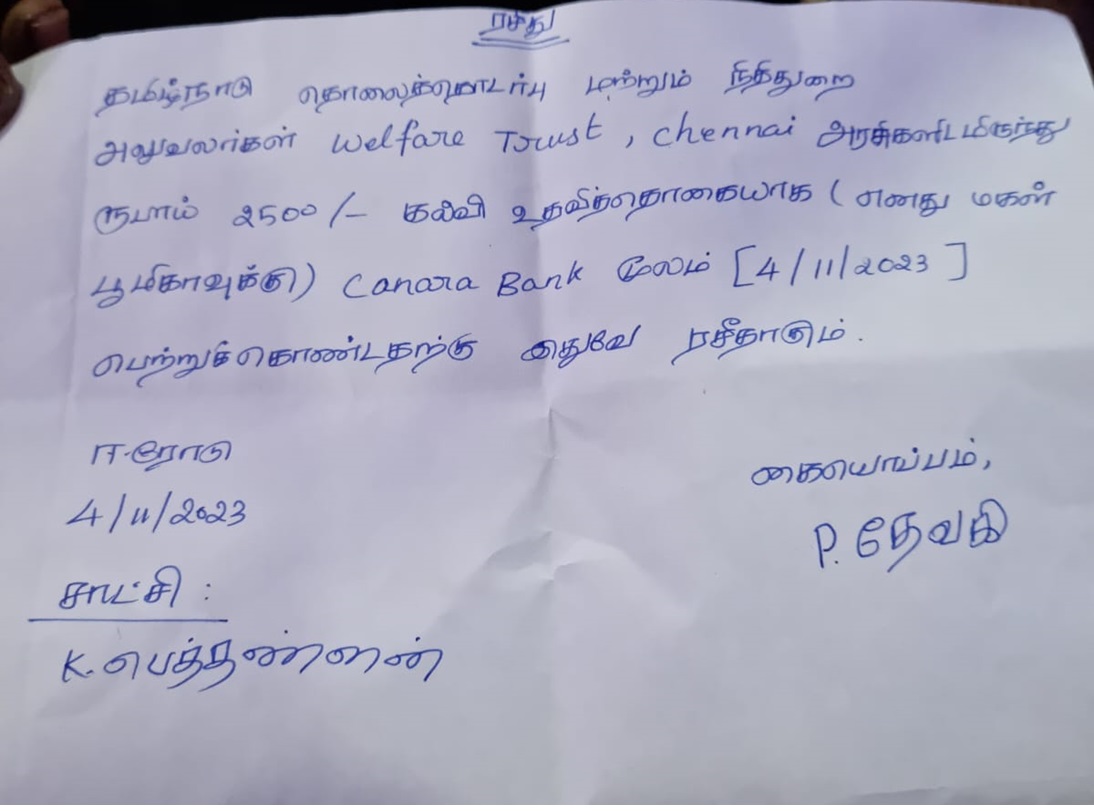 ரசீது
தமிழ்நாடு தொலைத்தொடர்பு மற்றும் நிதிதுறை
அலுவலர்கள் Welfare Trust, Chennai அரசிகளிடமிருந்து
ரூபாய் 2500/- கல்வி உதவித்தொகையாக (எனது மகள்
பூமிகாவுக்கு) Canara Bank மூலம் [4/11/2023]
பெற்றுக்கொண்டதற்கு இதுவே ரசீதாகும்.
ஈரோடு
4/11/2023
கையொப்பம்,
P. தேவகி
சாட்சி :
K. பெத்தண்ணன்